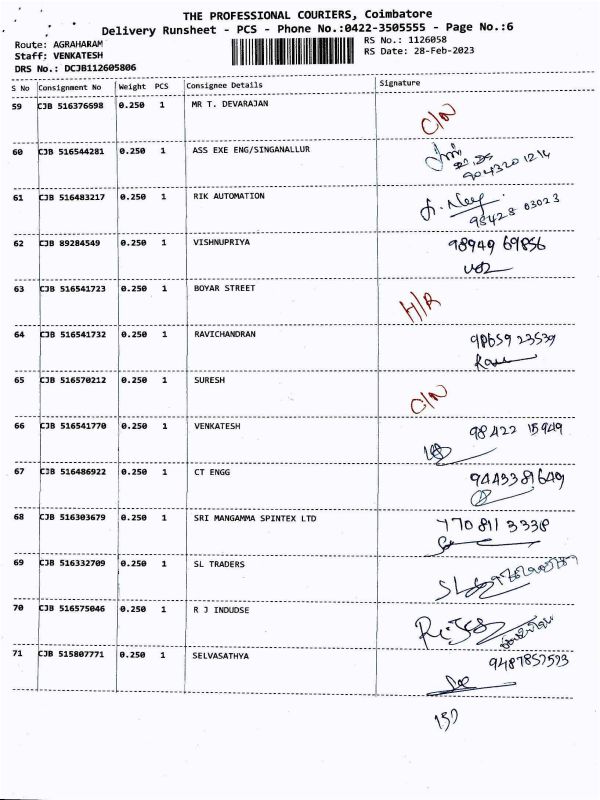 THE PROFESSIONAL COURIERS, Coimbatore
Delivery Runsheet - PCS - Phone No.:0422-3505555 - Page No.:6
Route: AGRAHARAM
RS No.: 1126058
Staff: VENKATESH
RS Date: 28-Feb-2023
DRS No.: DCJB112605806
S No Consignment No Weight PCS Consignee Details Signature
59 CJB 516376698 0.250 1 MR T. DEVARAJAN C/N
60 CJB 516544281 0.250 1 ASS EXE ENG/SINGANALLUR
9043201214
61 CJB 516483217 0.250 1 RIK AUTOMATION
98428 03023
62 CJB 89284549 0.250 1 VISHNUPRIYA 98949 69856
63 CJB 516541723 0.250 1 BOYAR STREET H/R
64 CJB 516541732 0.250 1 RAVICHANDRAN 98659 23539
65 CJB 516570212 0.250 1 SURESH C/N
66 CJB 516541770 0.250 1 VENKATESH 98422 15949
67 CJB 516486922 0.250 1 CT ENGG 9443381649
68 CJB 516303679 0.250 1 SRI MANGAMMA SPINTEX LTD 770811 3338
69 CJB 516332709 0.250 1 SL TRADERS SL
70 CJB 516575046 0.250 1 R J INDUDSE
71 CJB 515807771 0.250 1 SELVASATHYA 9487857573